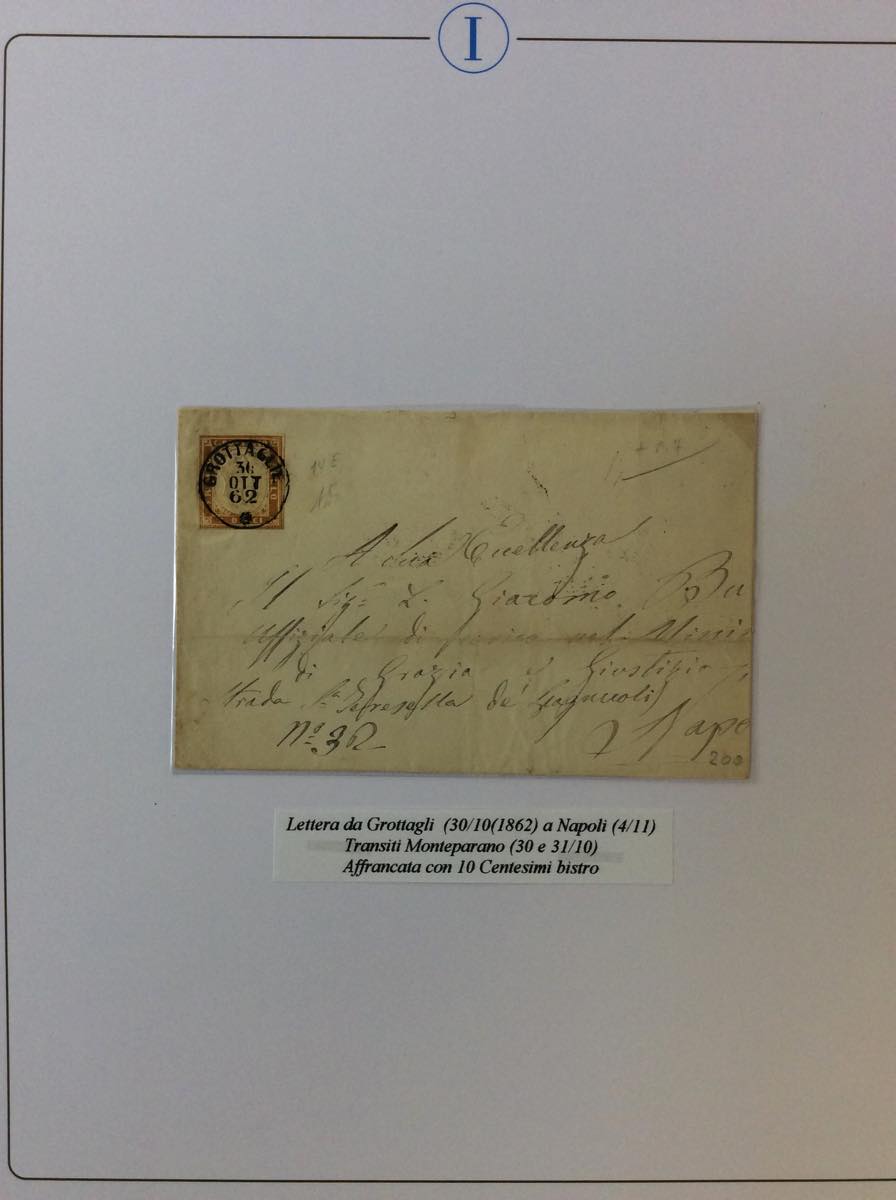 I
GROTTAGLIE
30
OTT
62
14 E
A Sua Eccellenza
Il Sig.r L. Giacomo Bu
Uffiziale di carico nel Minis
di Grazia e Giustizia
Strada S.a Teresella de'
N.o 32
Nap
200
Lettera da Grottagli (30/10(1862) a Napoli (4/11)
Transiti Monteparano (30 e 31/10)
Affrancata con 10 Centesimi bistro